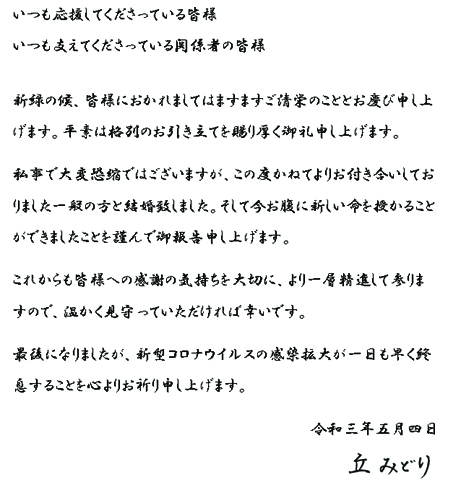 いつも応援してくださっている皆様
いつも支えてくださっている関係者の皆様
新緑の候、皆様におかれましてはますますご清栄のこととお慶び申し上
げます。平素は格別のお引き立てを賜り厚く御礼申し上げます。
私事で大変恐縮ではございますが、この度かねてよりお付き合いしてお
りました一般の方と結婚致しました。そして今お腹に新しい命を授かること
ができましたことを謹んで御報告申し上げます。
これからも皆様への感謝の気持ちを大切に、より一層精進して参りま
すので、温かく見守っていただければ幸いです。
最後になりましたが、新型コロナウイルスの感染拡大が一日も早く終
息することを心よりお祈り申し上げます。
令和三年五月四日
丘 みどり